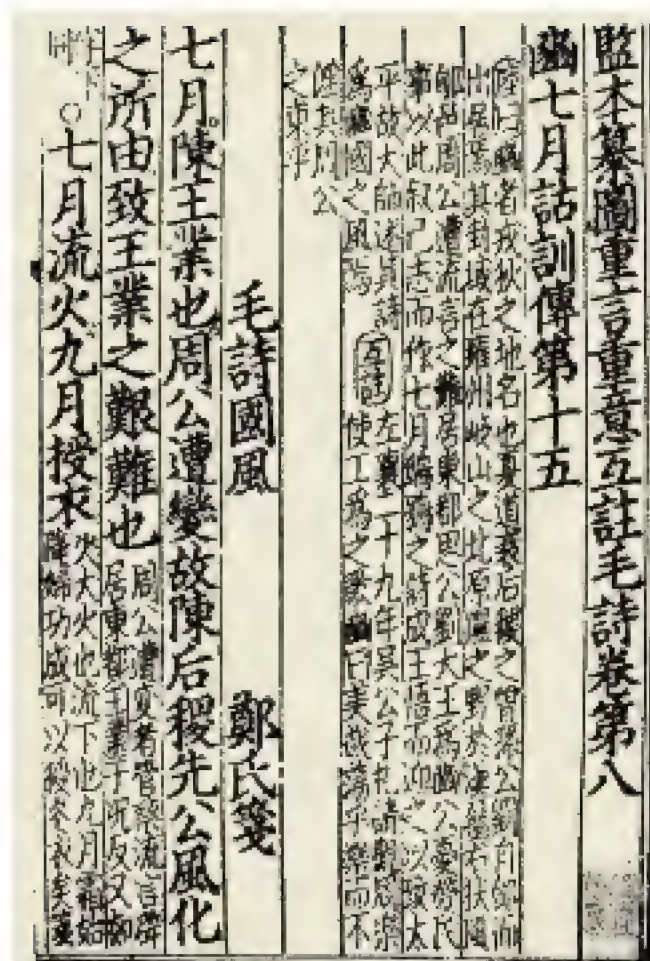 監本纂圖重言重意互註毛詩卷第八
豳七月詁訓傳第十五
陸曰豳者戎狄之地名也夏道衰后稷之曾孫公劉自邰而
出居焉其封域在雍州岐山之北原隰之野於漢屬右扶風
郇邑周公遭流言之難居東都思公劉大王為豳公憂勞民
事以此叙己志而作七月鴟鴞之詩成王悟而迎之以致太
平故大師述其詩
為豳國之風焉
互註
左襄二十九年吳公子札請觀周樂
使工為之歌豳曰美哉蕩乎樂而不
淫其周公
之東乎
毛詩國風 鄭氏箋
七月陳王業也周公遭變故陳后稷先公風化
之所由致王業之艱難也
周公遭變者管蔡流言辟
居東都王業于況反又如
字下
同
○七月流火九月授衣
火大火也流下也九月霜始
降婦功成可以授冬衣矣箋